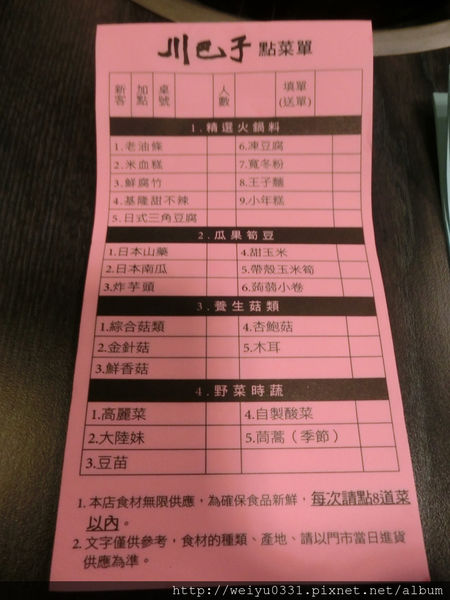 川巴子 點菜單
新客 加點 桌號 人數 填單(送單)
1.精選火鍋料
1.老油條 6.凍豆腐
2.米血糕 7.寬冬粉
3.鮮腐竹 8.王子麵
4.基隆甜不辣 9.小年糕
5.日式三角豆腐
2.瓜果筍豆
1.日本山藥 4.甜玉米
2.日本南瓜 5.帶殼玉米筍
3.炸芋頭 6.蒟蒻小卷
3.養生菇類
1.綜合菇類 4.杏鮑菇
2.金針菇 5.木耳
3.鮮香菇
4.野菜時蔬
1.高麗菜 4.自製酸菜
2.大陸妹 5.茼蒿(季節)
3.豆苗
1.本店食材無限供應,為確保食品新鮮,每次請點8道菜
以內。
2.文字僅供參考,食材的種類、產地、請以門市當日進貨
供應為準。
http://weiyu0331.pixnet.net/album